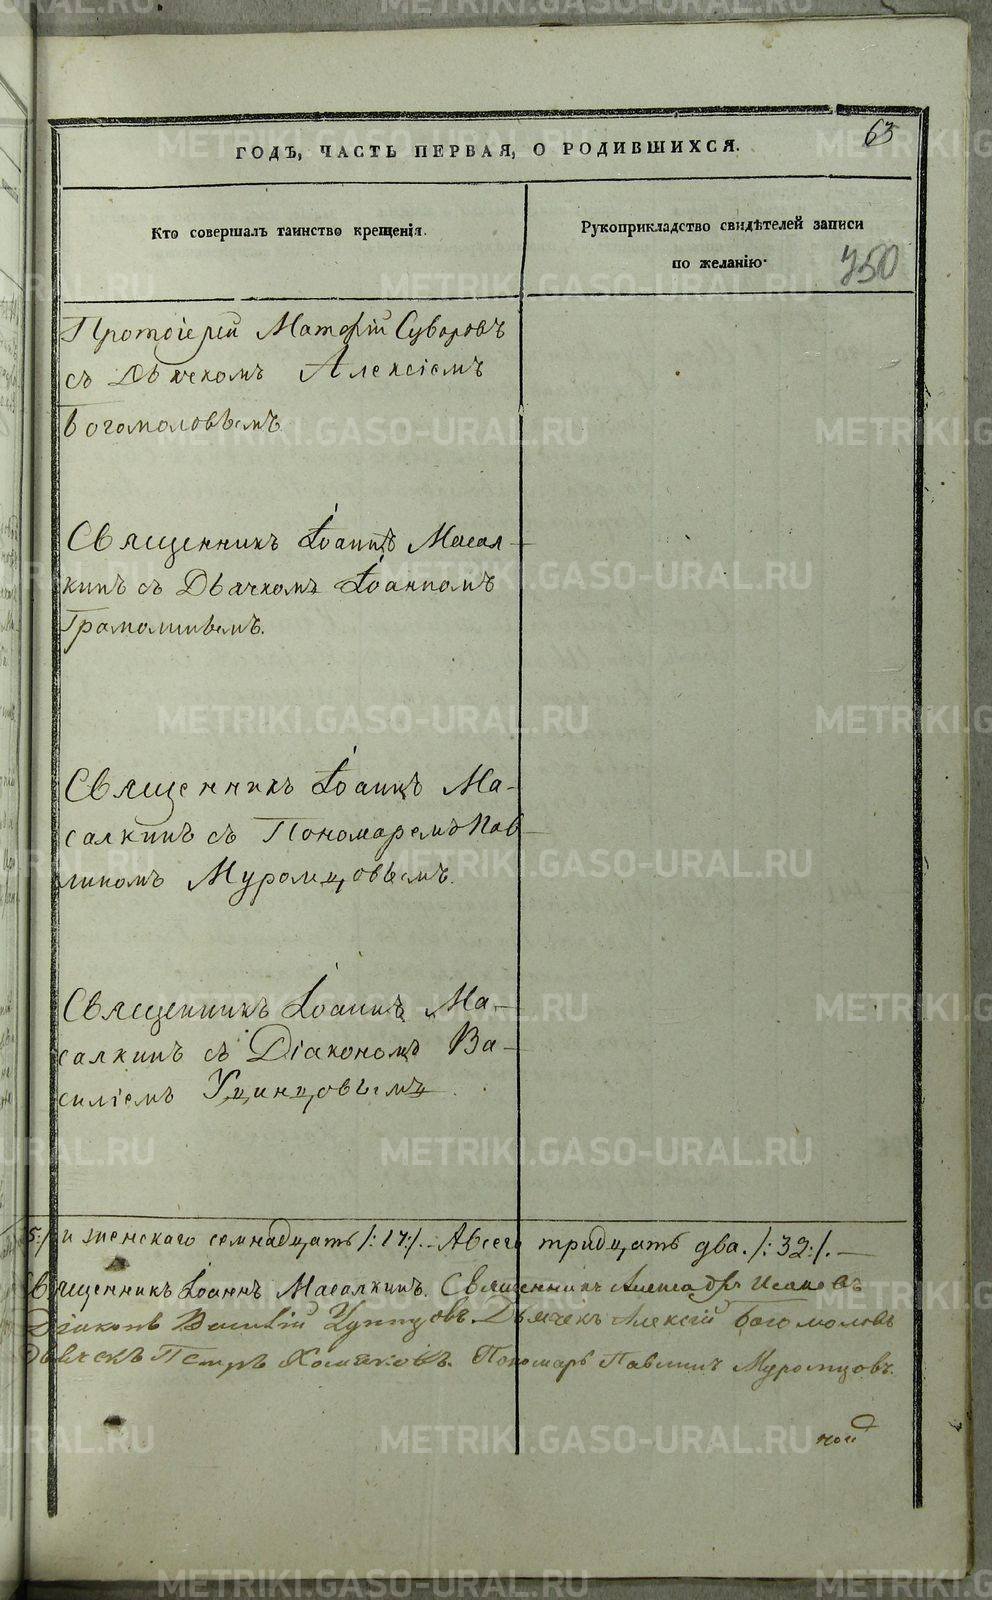 63
ГОДЪ, ЧАСТЬ ПЕРВАЯ, О РОДИВШИХСЯ.
Кто совершалъ таинство крещенія.
Рукоприкладство свидѣтелей записи
по желанію.
750
Протоіерей Матѳій Суворовъ
съ Дьячкомъ Алексіемъ
Богомоловымъ
Священникъ Іоаннъ Масал-
кинъ съ Дьячкомъ Іоанномъ
Священникъ Іоаннъ Ма-
салкинъ съ Пономаремъ Пав-
линомъ Муромцовымъ.
Священникъ Іоаннъ Ма-
салкинъ съ Діакономъ Ва-
силіемъ
5:/ и женскаго семнадцать /:17:/. А всего тридцать два. /:32:/.
Священникъ Іоаннъ Масалкинъ. Священникъ Александръ Исаковъ
Діаконъ Василій Дьячекъ Алексій Богомоловъ
Дьячекъ Петръ Хомяковъ. Пономарь Павлинъ Муромцовъ.
ной
METRIKI.GASO-URAL.RU